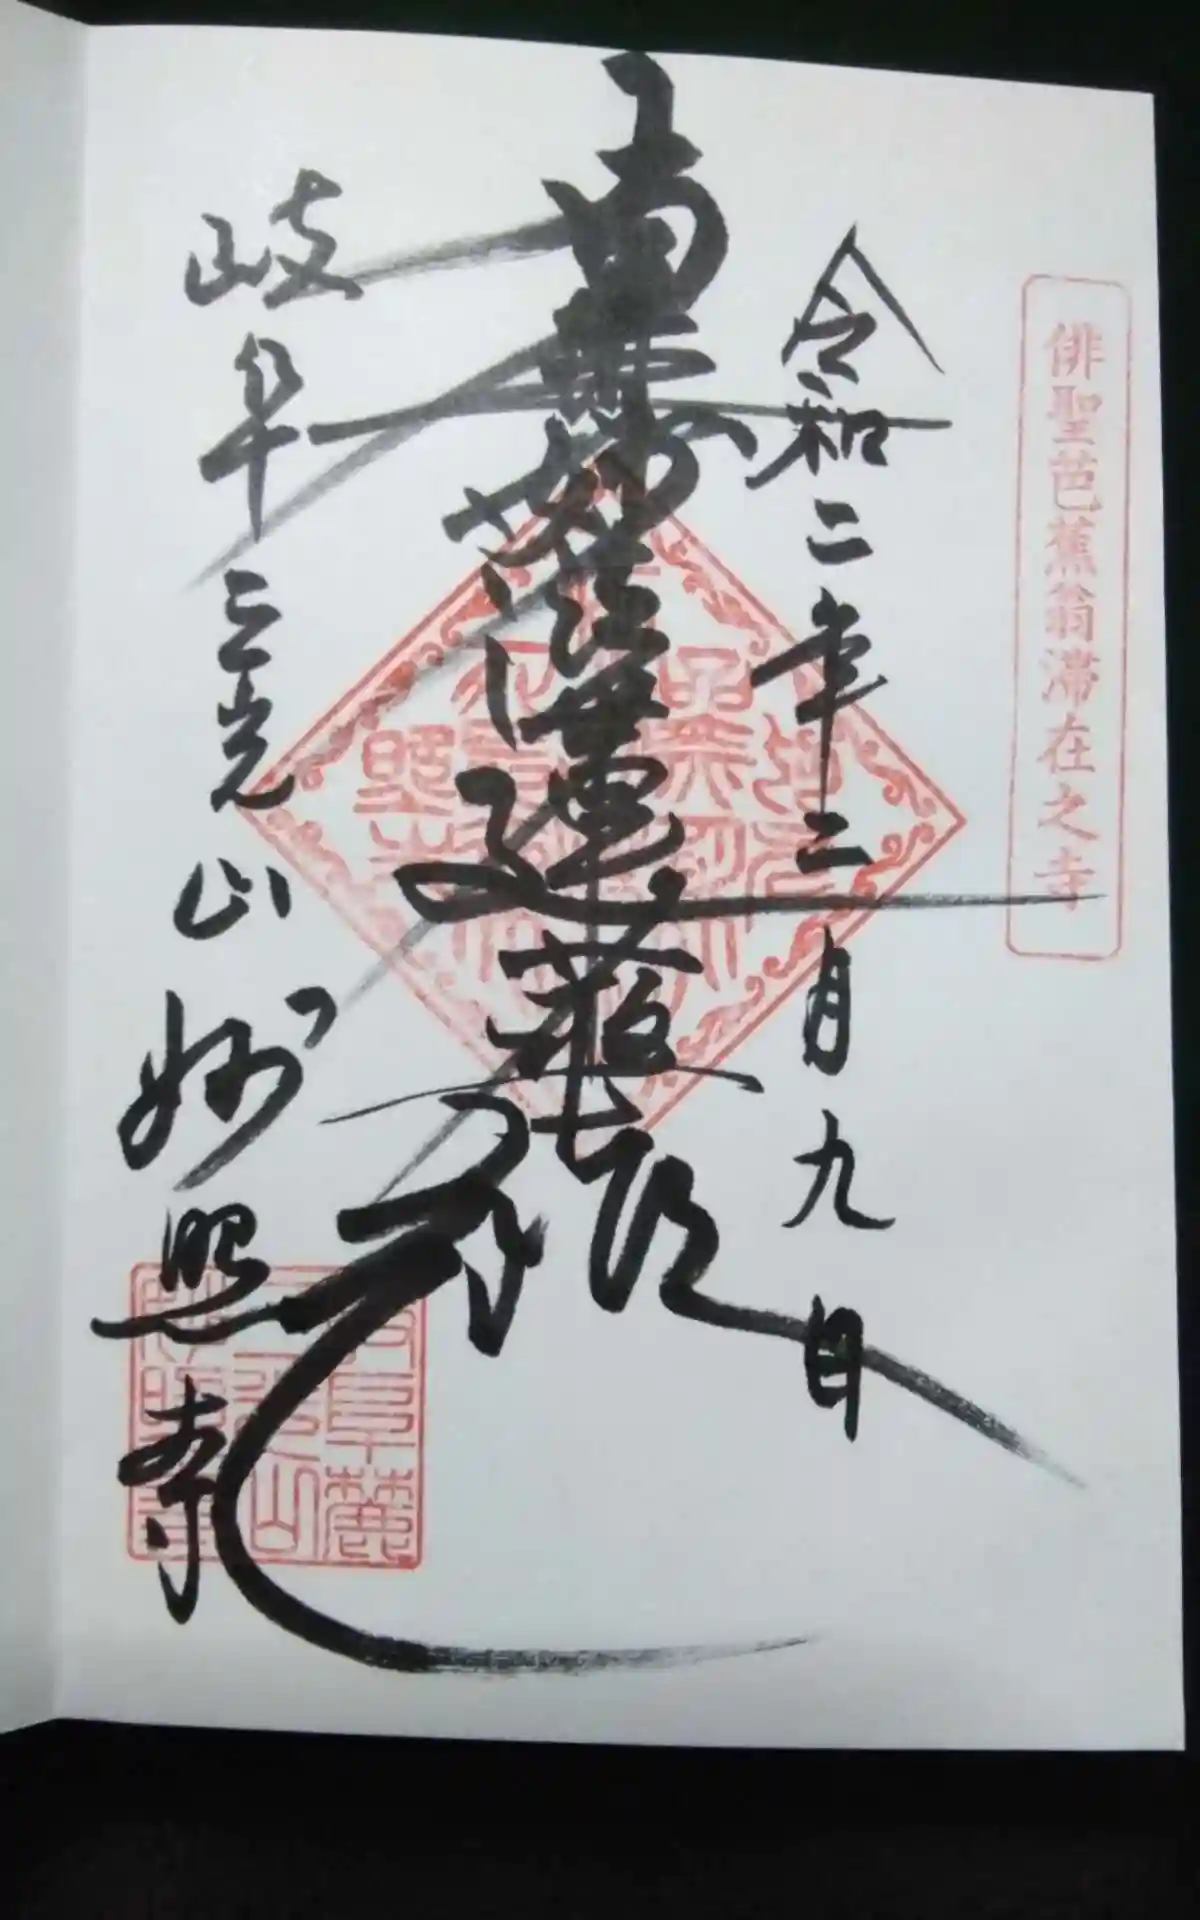 俳聖芭蕉翁滞在之寺
令和二年二月九日
南無妙法蓮華経
岐阜 三光山 妙照寺